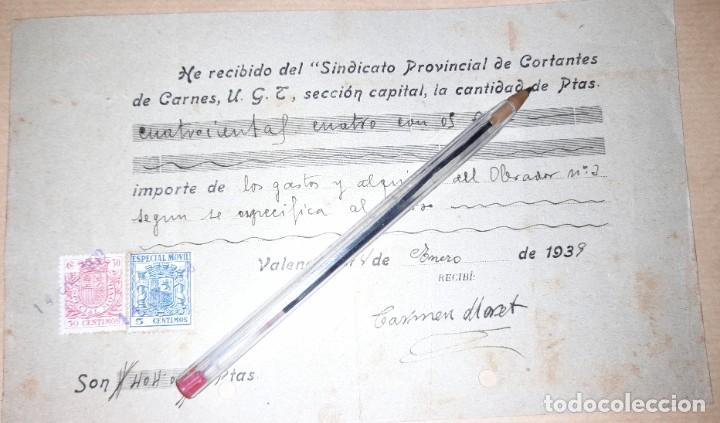 He recibido del "Sindicato Provincial de Cortantes
de Carnes, U. G. T., sección capital, la cantidad de Ptas.
cuatrocientas cuatro con 05
importe de los gastos y del Obrador nº 2
segun se especifica al
Valen de Enero de 1939
RECIBÍ:
Carmen Moret
50 CENTIMOS
ESPECIAL MOVIL
5 CENTIMOS
Son 404 Ptas.
todocoleccion.net